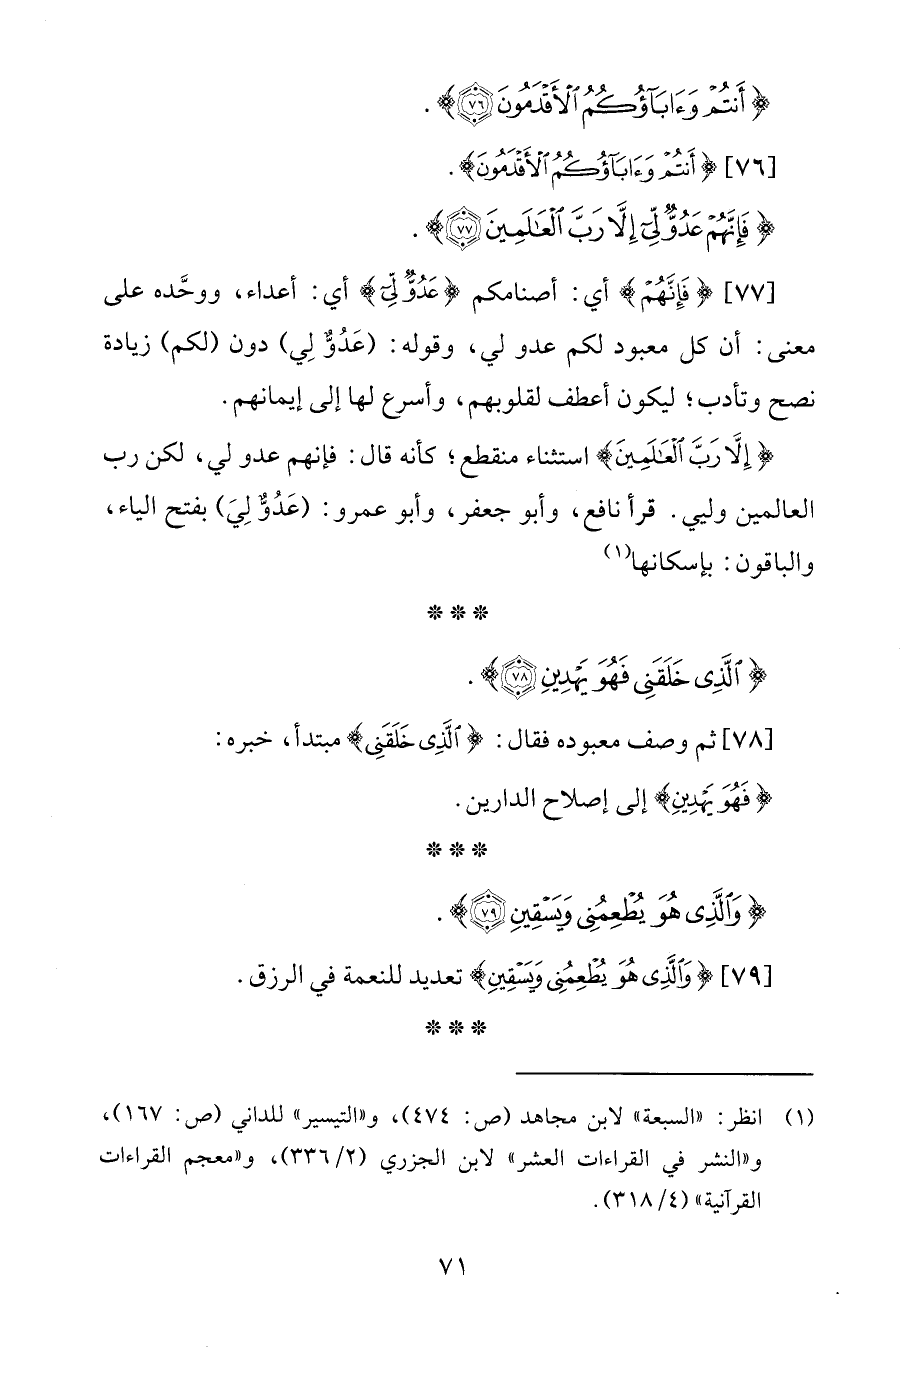 ﴿ أَنتُمْ وَءَابَآؤُكُمُ ٱلْأَقْدَمُونَ ٧٦ ﴾ .
[٧٦] ﴿ أَنتُمْ وَءَابَآؤُكُمُ ٱلْأَقْدَمُونَ ﴾ .
﴿ فَإِنَّهُمْ عَدُوٌّ لِّىٓ إِلَّا رَبَّ ٱلْعَٰلَمِينَ ٧٧ ﴾ .
[٧٧] ﴿ فَإِنَّهُمْ ﴾ أي: أصنامكم ﴿ عَدُوٌّ لِّىٓ ﴾ أي: أعداء، ووحَّده على
معنى: أن كل معبود لكم عدو لي، وقوله: (عَدُوٌّ لِي) دون (لكم) زيادة
نصح وتأدب؛ ليكون أعطف لقلوبهم، وأسرع لها إلى إيمانهم.
﴿ إِلَّا رَبَّ ٱلْعَٰلَمِينَ ﴾ استثناء منقطع؛ كأنه قال: فإنهم عدو لي، لكن رب
العالمين وليي. قرأ نافع، وأبو جعفر، وأبو عمرو: (عَدُوٌّ لِيَ) بفتح الياء،
والباقون: بإسكانها(١)
* * *
﴿ ٱلَّذِى خَلَقَنِى فَهُوَ يَهْدِينِ ٧٨ ﴾ .
[٧٨] ثم وصف معبوده فقال: ﴿ ٱلَّذِى خَلَقَنِى ﴾ مبتدأ، خبره:
﴿ فَهُوَ يَهْدِينِ ﴾ إلى إصلاح الدارين.
* * *
﴿ وَٱلَّذِى هُوَ يُطْعِمُنِى وَيَسْقِينِ ٧٩ ﴾ .
[٧٩] ﴿ وَٱلَّذِى هُوَ يُطْعِمُنِى وَيَسْقِينِ ﴾ تعديد للنعمة في الرزق.
* * *
(١) انظر: «السبعة» لابن مجاهد (ص: ٤٧٤)، و«التيسير» للداني (ص: ١٦٧)،
و«النشر في القراءات العشر» لابن الجزري (٢/ ٣٣٦)، و«معجم القراءات
القرآنية» (٤/ ٣١٨).
٧١